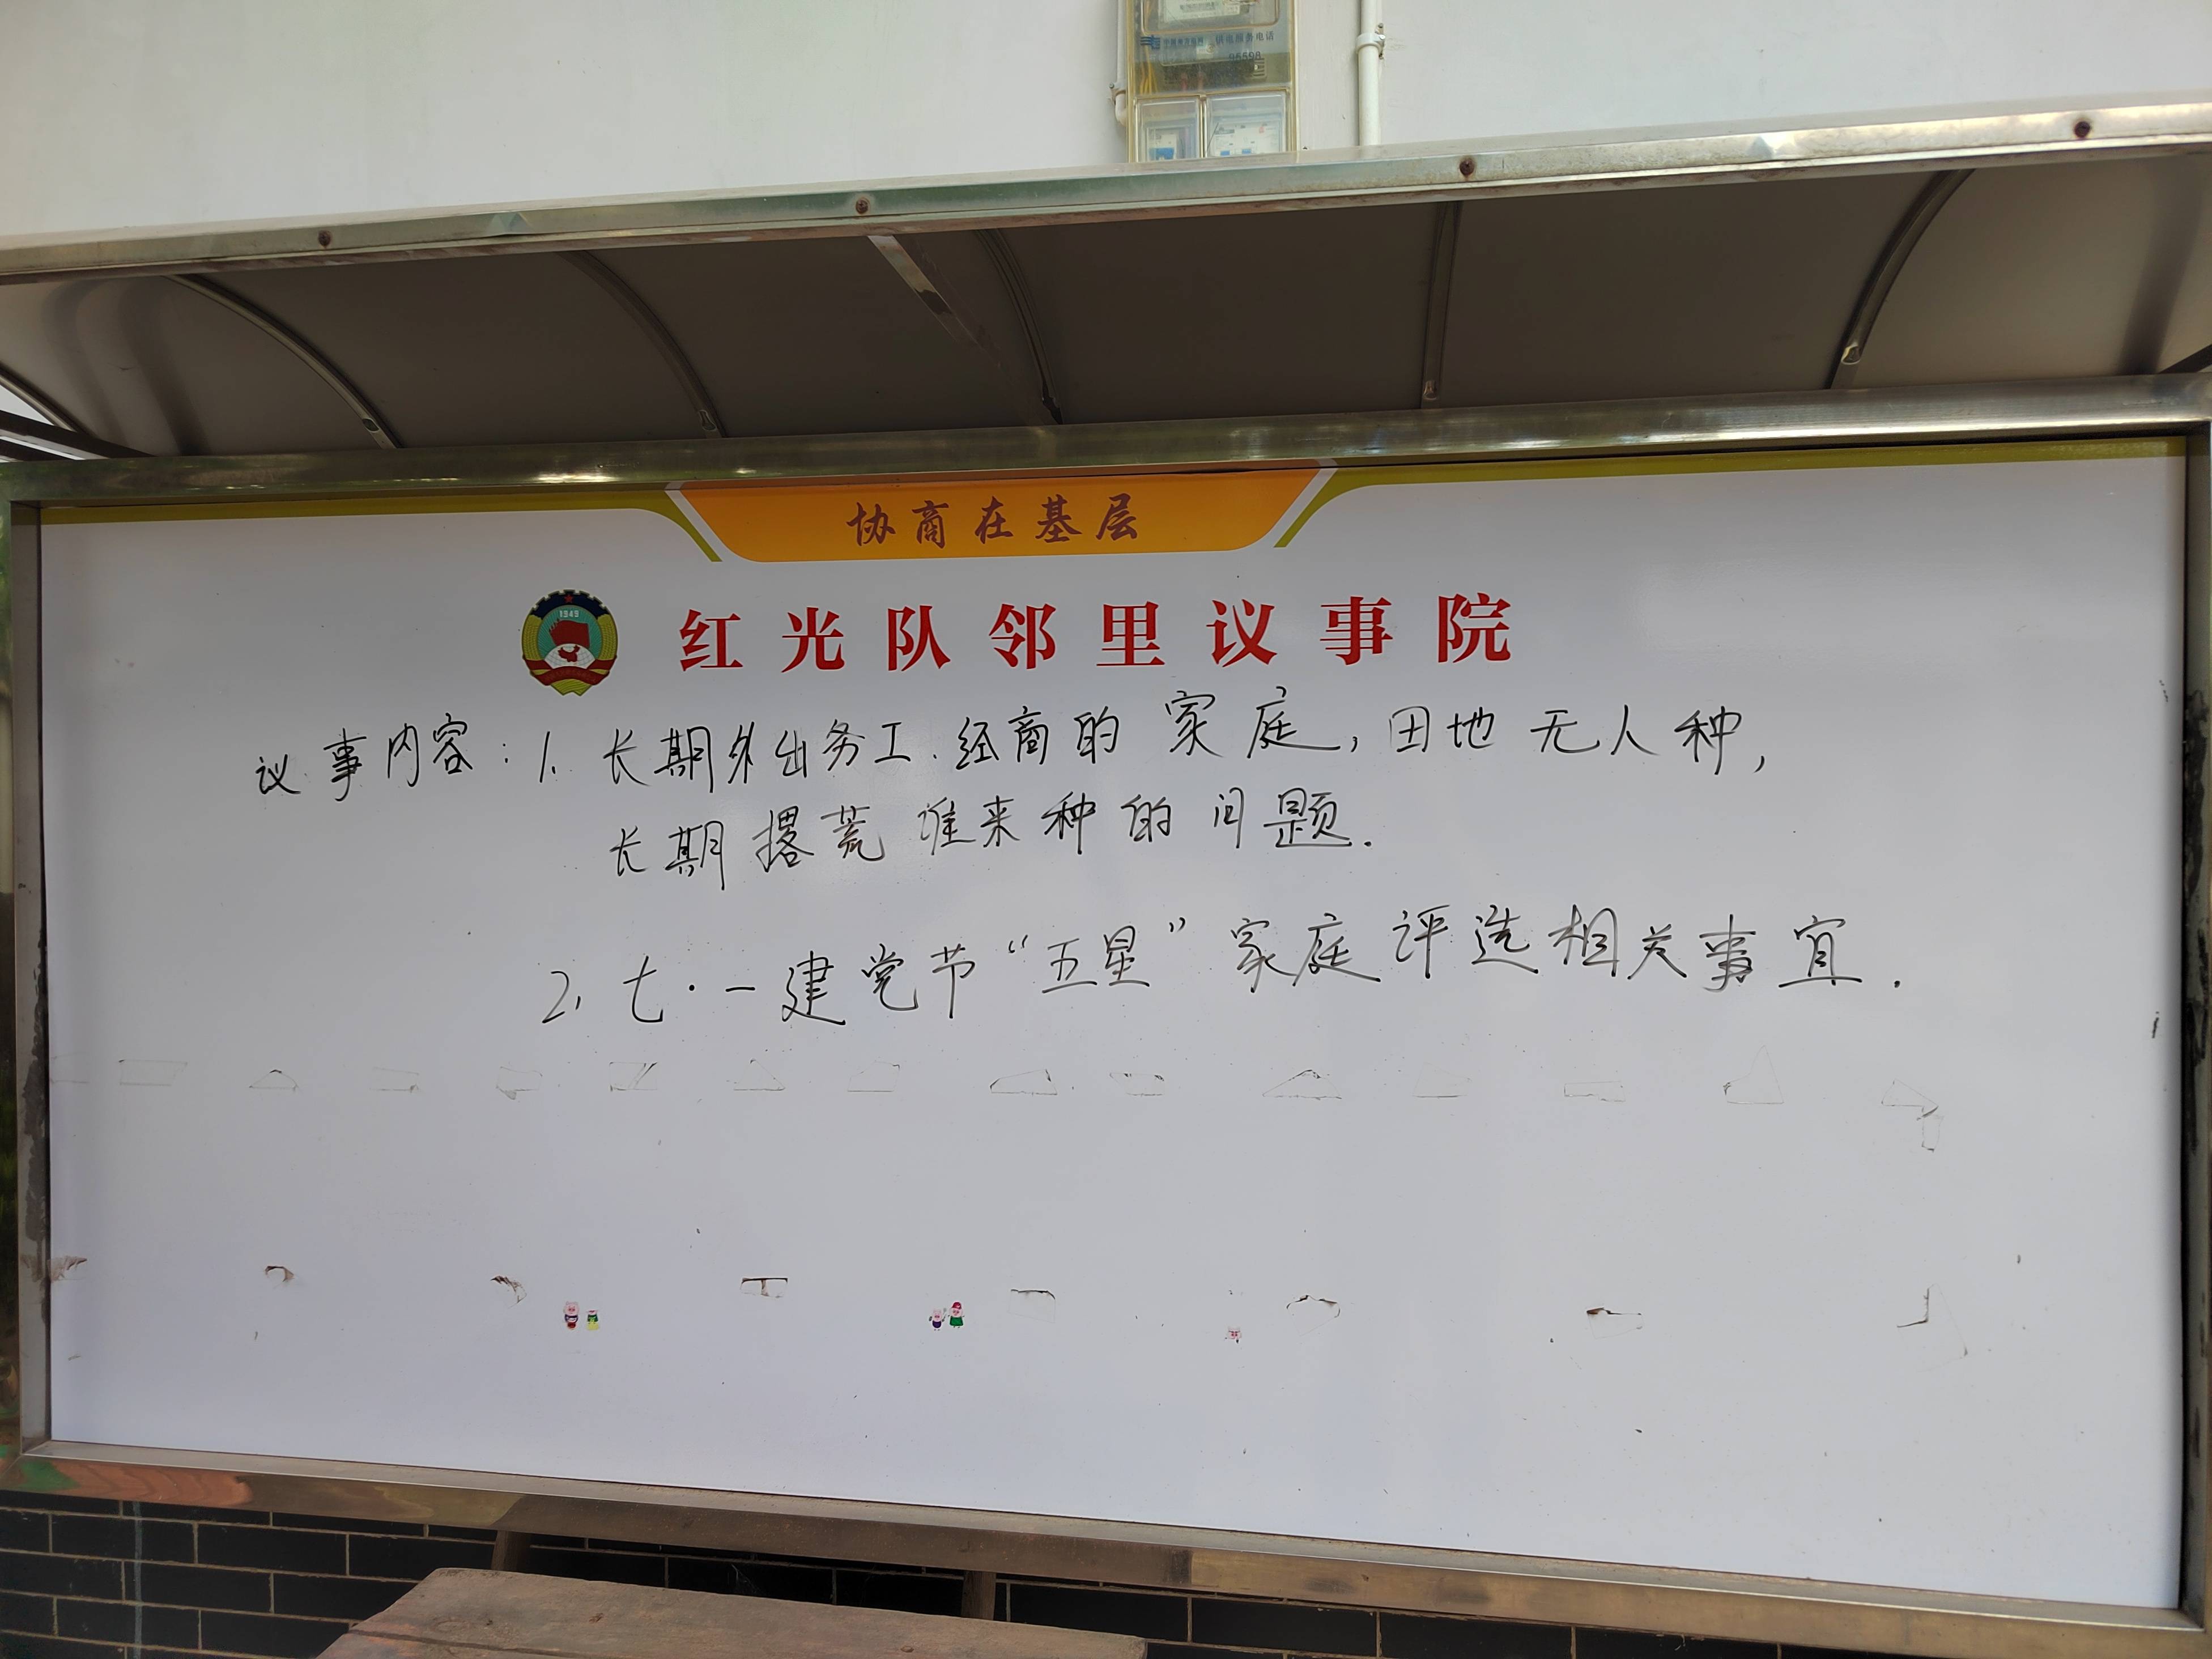 供电服务电话
95598
协商在基层
1949
红光队邻里议事院
议事内容：1、长期外出务工、经商的家庭，田地无人种，
长期撂荒谁来种的问题.
2、七·一建党节“五星”家庭评选相关事宜.